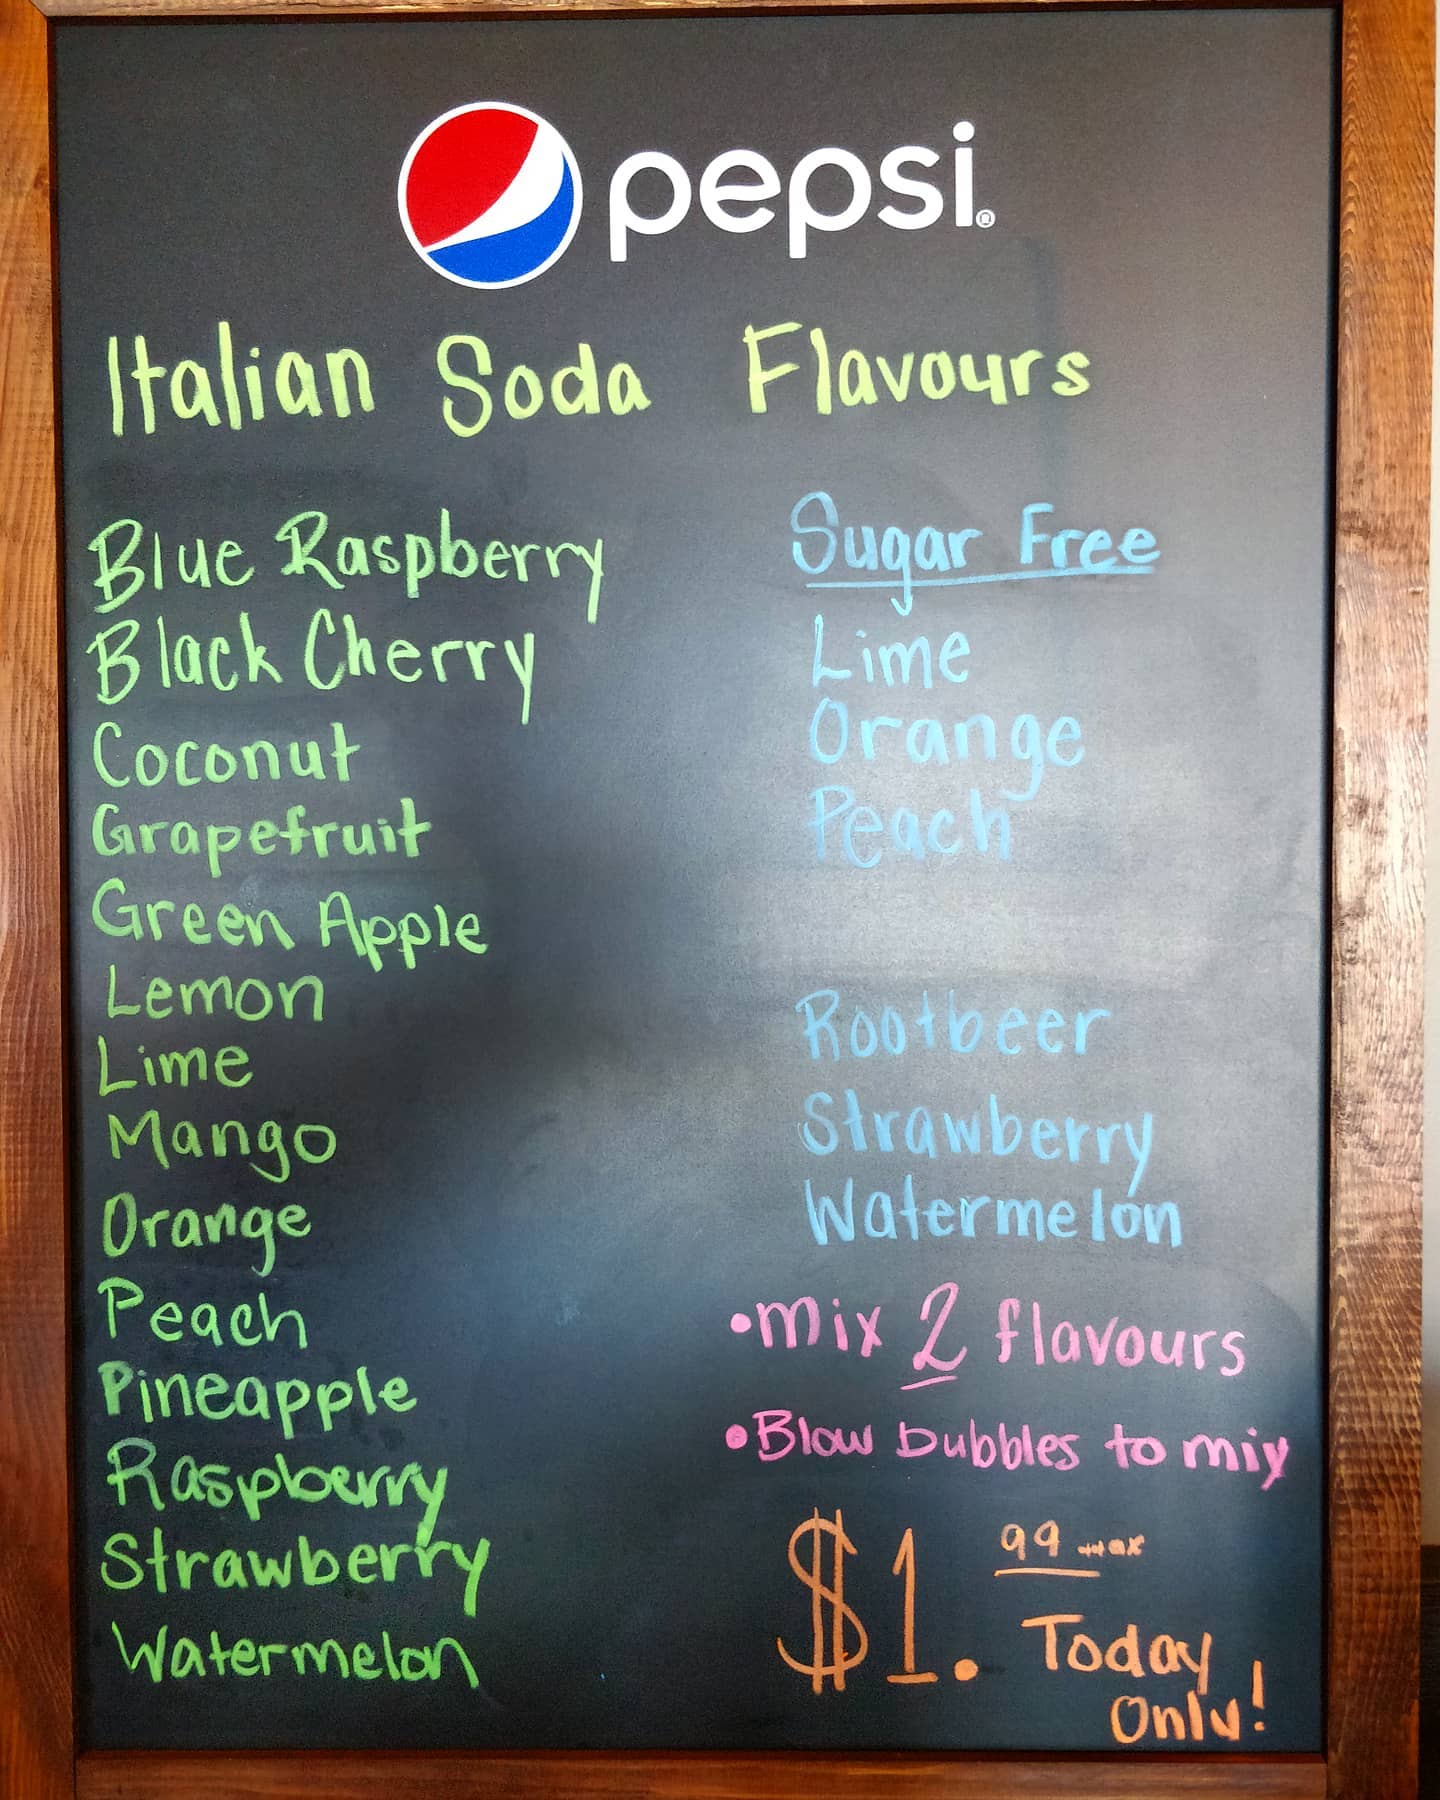 pepsi®
Italian Soda Flavours
Blue Raspberry
Black Cherry
Coconut
Grapefruit
Green Apple
Lemon
Lime
Mango
Orange
Peach
Pineapple
Raspberry
Strawberry
Watermelon
Sugar Free
Lime
Orange
Peach
Rootbeer
Strawberry
Watermelon
•Mix 2 flavours
•Blow bubbles to mix
$1.99 +tax
Today
Only!